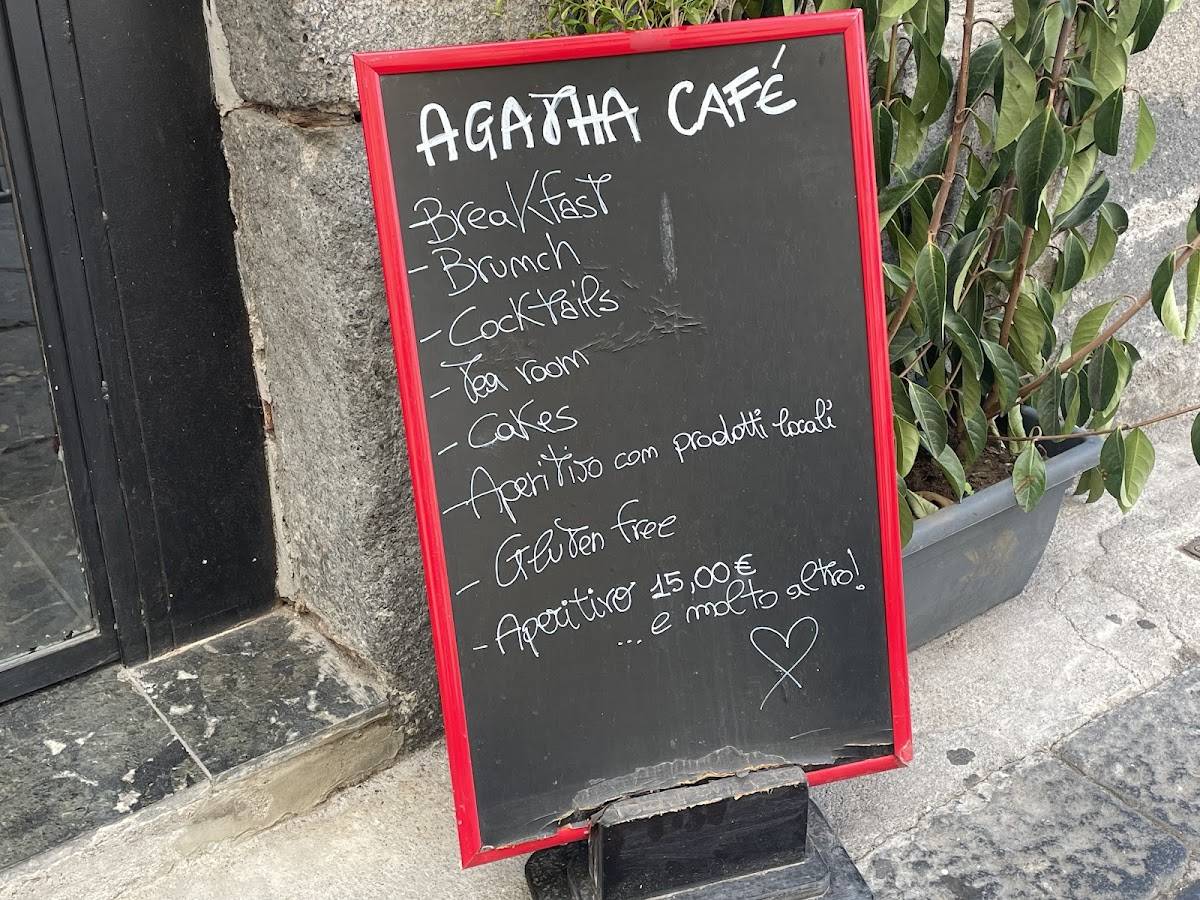 AGATHA CAFÉ
- Breakfast
- Brunch
- Cocktails
- Tea room
- Cakes
- Aperitivo con prodotti locali
- Gluten free
- Aperitivo 15,00€
... e molto altro!